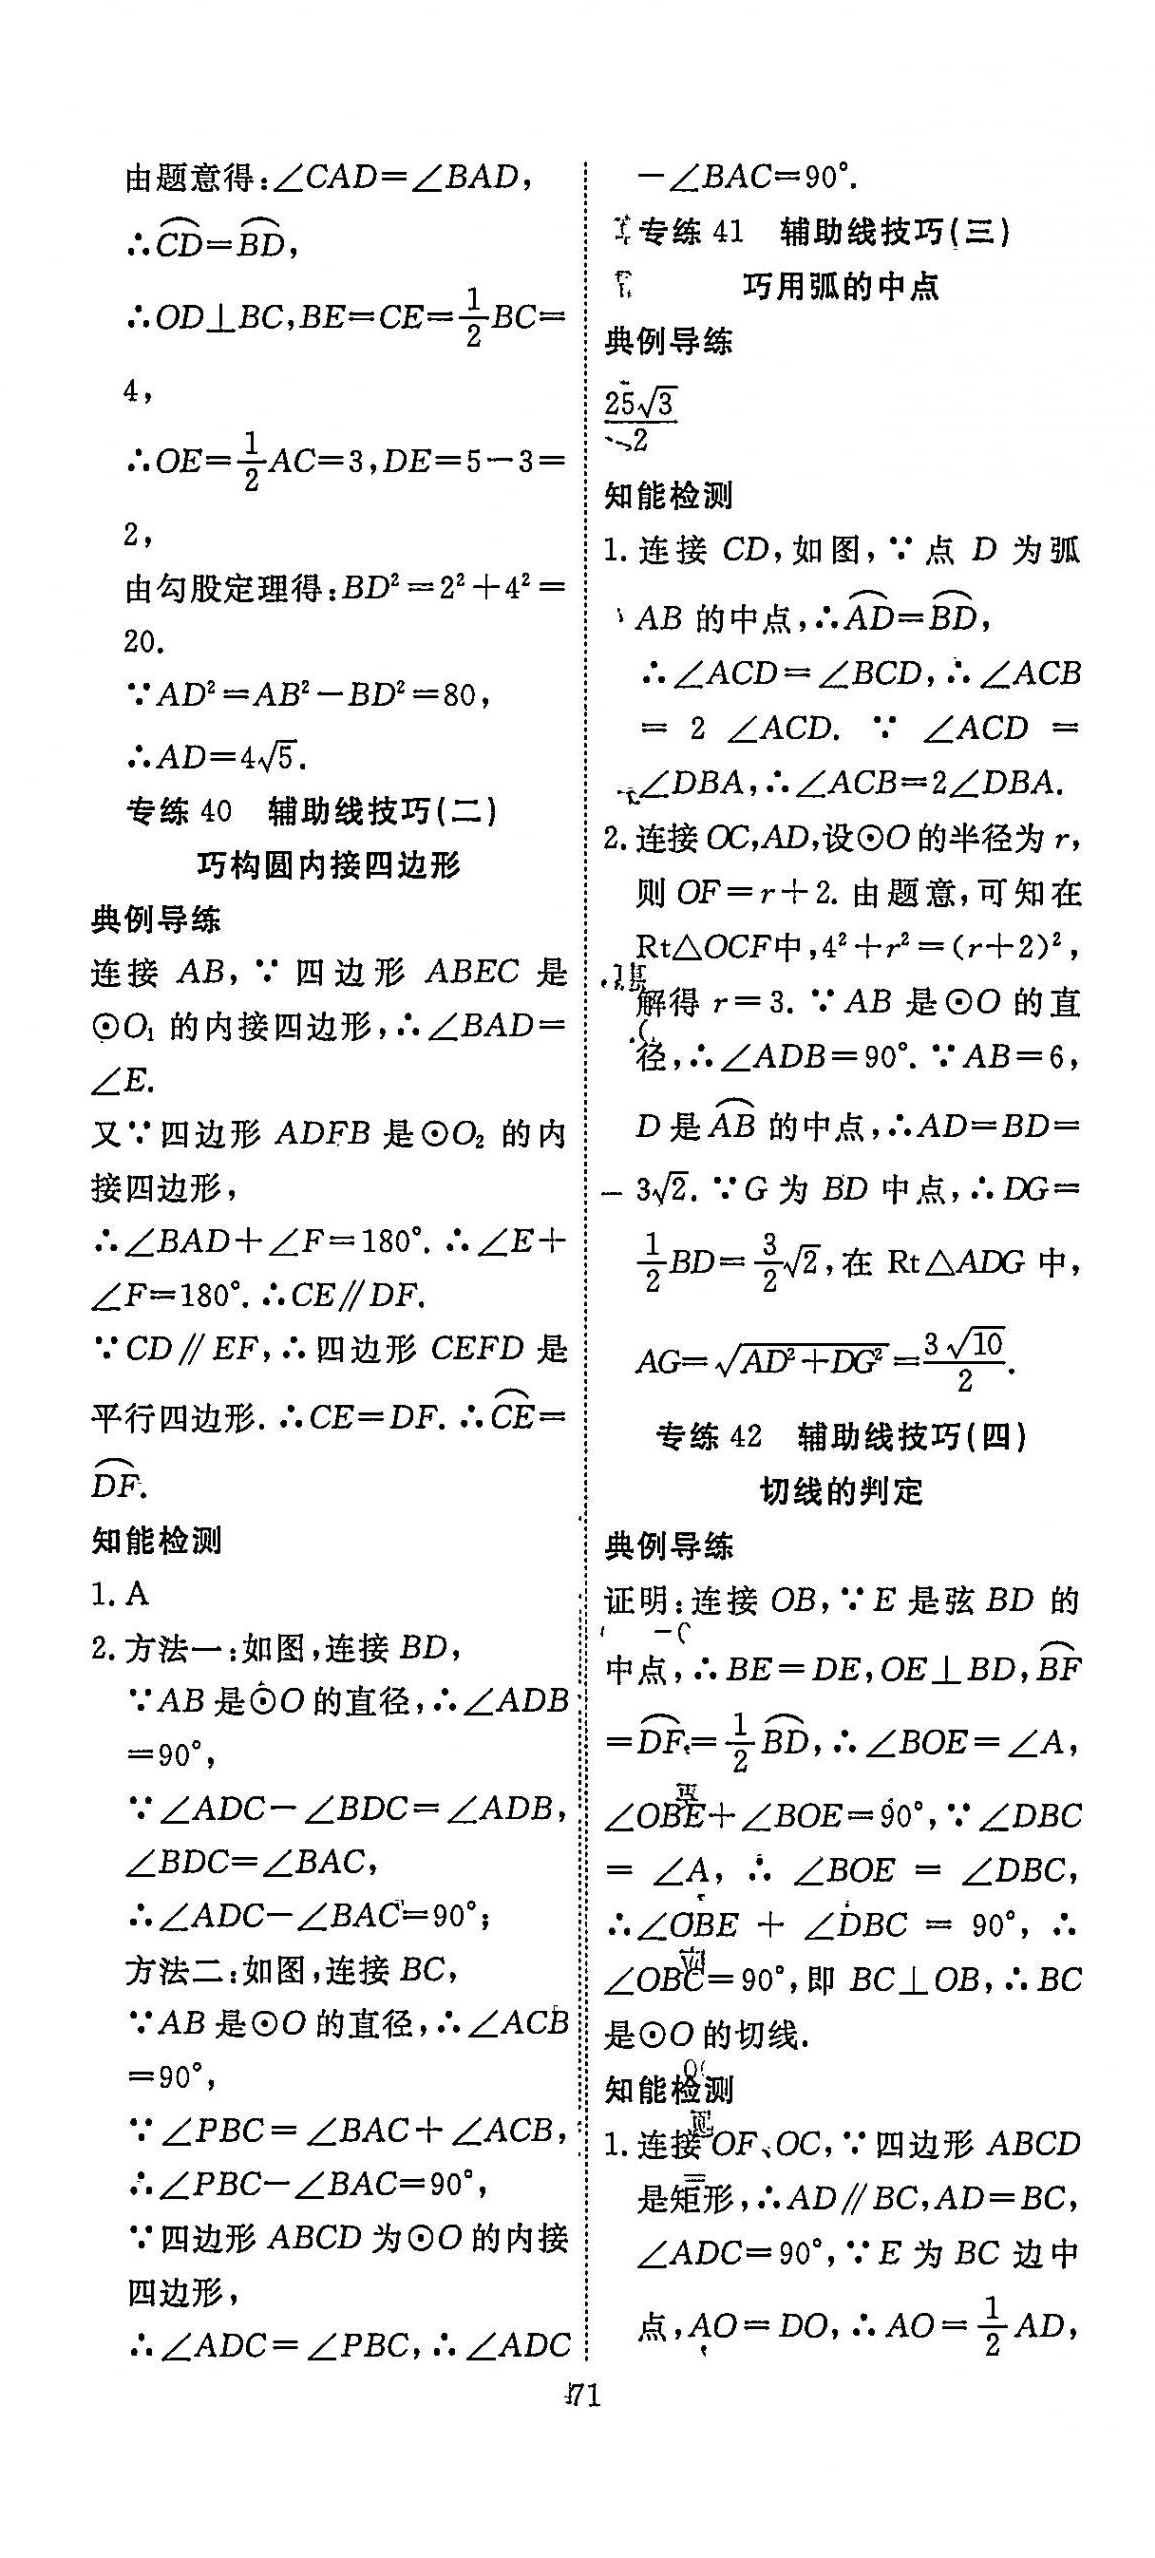 由题意得:∠CAD=∠BAD,
∴⌒CD=⌒BD,
∴OD⊥BC,BE=CE=1/2BC=
4,
∴OE=1/2AC=3,DE=5-3=
2,
由勾股定理得:BD²=2²+4²=
20.
∵AD²=AB²-BD²=80,
∴AD=4√5.
专练 40 辅助线技巧(二)
巧构圆内接四边形
典例导练
连接 AB,∵四边形 ABEC 是
⊙O₁ 的内接四边形,∴∠BAD=
∠E.
又∵四边形 ADFB 是⊙O₂ 的内
接四边形,
∴∠BAD+∠F=180°.∴∠E+
∠F=180°.∴CE∥DF.
∵CD∥EF,∴四边形 CEFD 是
平行四边形.∴CE=DF.∴⌒CE=
⌒DF.
知能检测
1. A
2. 方法一:如图,连接 BD,
∵AB 是⊙O 的直径,∴∠ADB
=90°,
∵∠ADC-∠BDC=∠ADB,
∠BDC=∠BAC,
∴∠ADC-∠BAC=90°;
方法二:如图,连接 BC,
∵AB 是⊙O 的直径,∴∠ACB
=90°,
∵∠PBC=∠BAC+∠ACB,
∴∠PBC-∠BAC=90°,
∵四边形 ABCD 为⊙O 的内接
四边形,
∴∠ADC=∠PBC,∴∠ADC
-∠BAC=90°.
专练 41 辅助线技巧(三)
巧用弧的中点
典例导练
25√3/2
知能检测
1. 连接 CD,如图,∵点 D 为弧
AB 的中点,∴⌒AD=⌒BD,
∴∠ACD=∠BCD,∴∠ACB
=2∠ACD.∵∠ACD=
∠DBA,∴∠ACB=2∠DBA.
2. 连接 OC,AD,设⊙O 的半径为 r,
则 OF=r+2.由题意,可知在
Rt△OCF中,4²+r²=(r+2)²,
解得 r=3.∵AB 是⊙O 的直
径,∴∠ADB=90°.∵AB=6,
D 是⌒AB 的中点,∴AD=BD=
3√2.∵G 为 BD 中点,∴DG=
1/2BD=3/2√2,在 Rt△ADG 中,
AG=√(AD²+DG²)=3√10/2.
专练 42 辅助线技巧(四)
切线的判定
典例导练
证明:连接 OB,∵E 是弦 BD 的
中点,∴BE=DE,OE⊥BD,⌒BF
=⌒DF=1/2⌒BD,∴∠BOE=∠A,
∠OBE+∠BOE=90°,∵∠DBC
=∠A,∴∠BOE=∠DBC,
∴∠OBE+∠DBC=90°,∴
∠OBC=90°,即 BC⊥OB,∴BC
是⊙O 的切线.
知能检测
1. 连接 OF、OC,∵四边形 ABCD
是矩形,∴AD∥BC,AD=BC,
∠ADC=90°,∵E 为 BC 边中
点,AO=DO,∴AO=1/2AD,
71